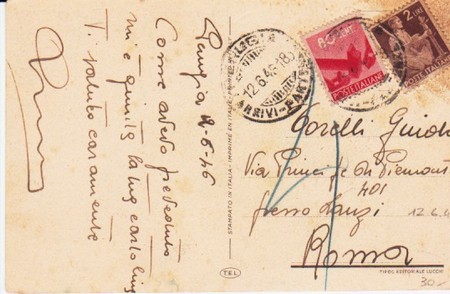 Perugia 9-6-46
Come avevo preveduto
mi è giunta la tua cartolina
Ti saluto caramente
STAMPATO IN ITALIA - IMPRIMÉ EN ITALIE
TEL
12.6.46.18
ARRIVI-PAR
POSTE ITALIANE
2 LIRE
POSTE ITALIANE
Torelli Guido
Via Principe di Piemonte
401
presso Lanzi
12.6.4
Roma
PIREG EDITORIALE LUCCHI
30-